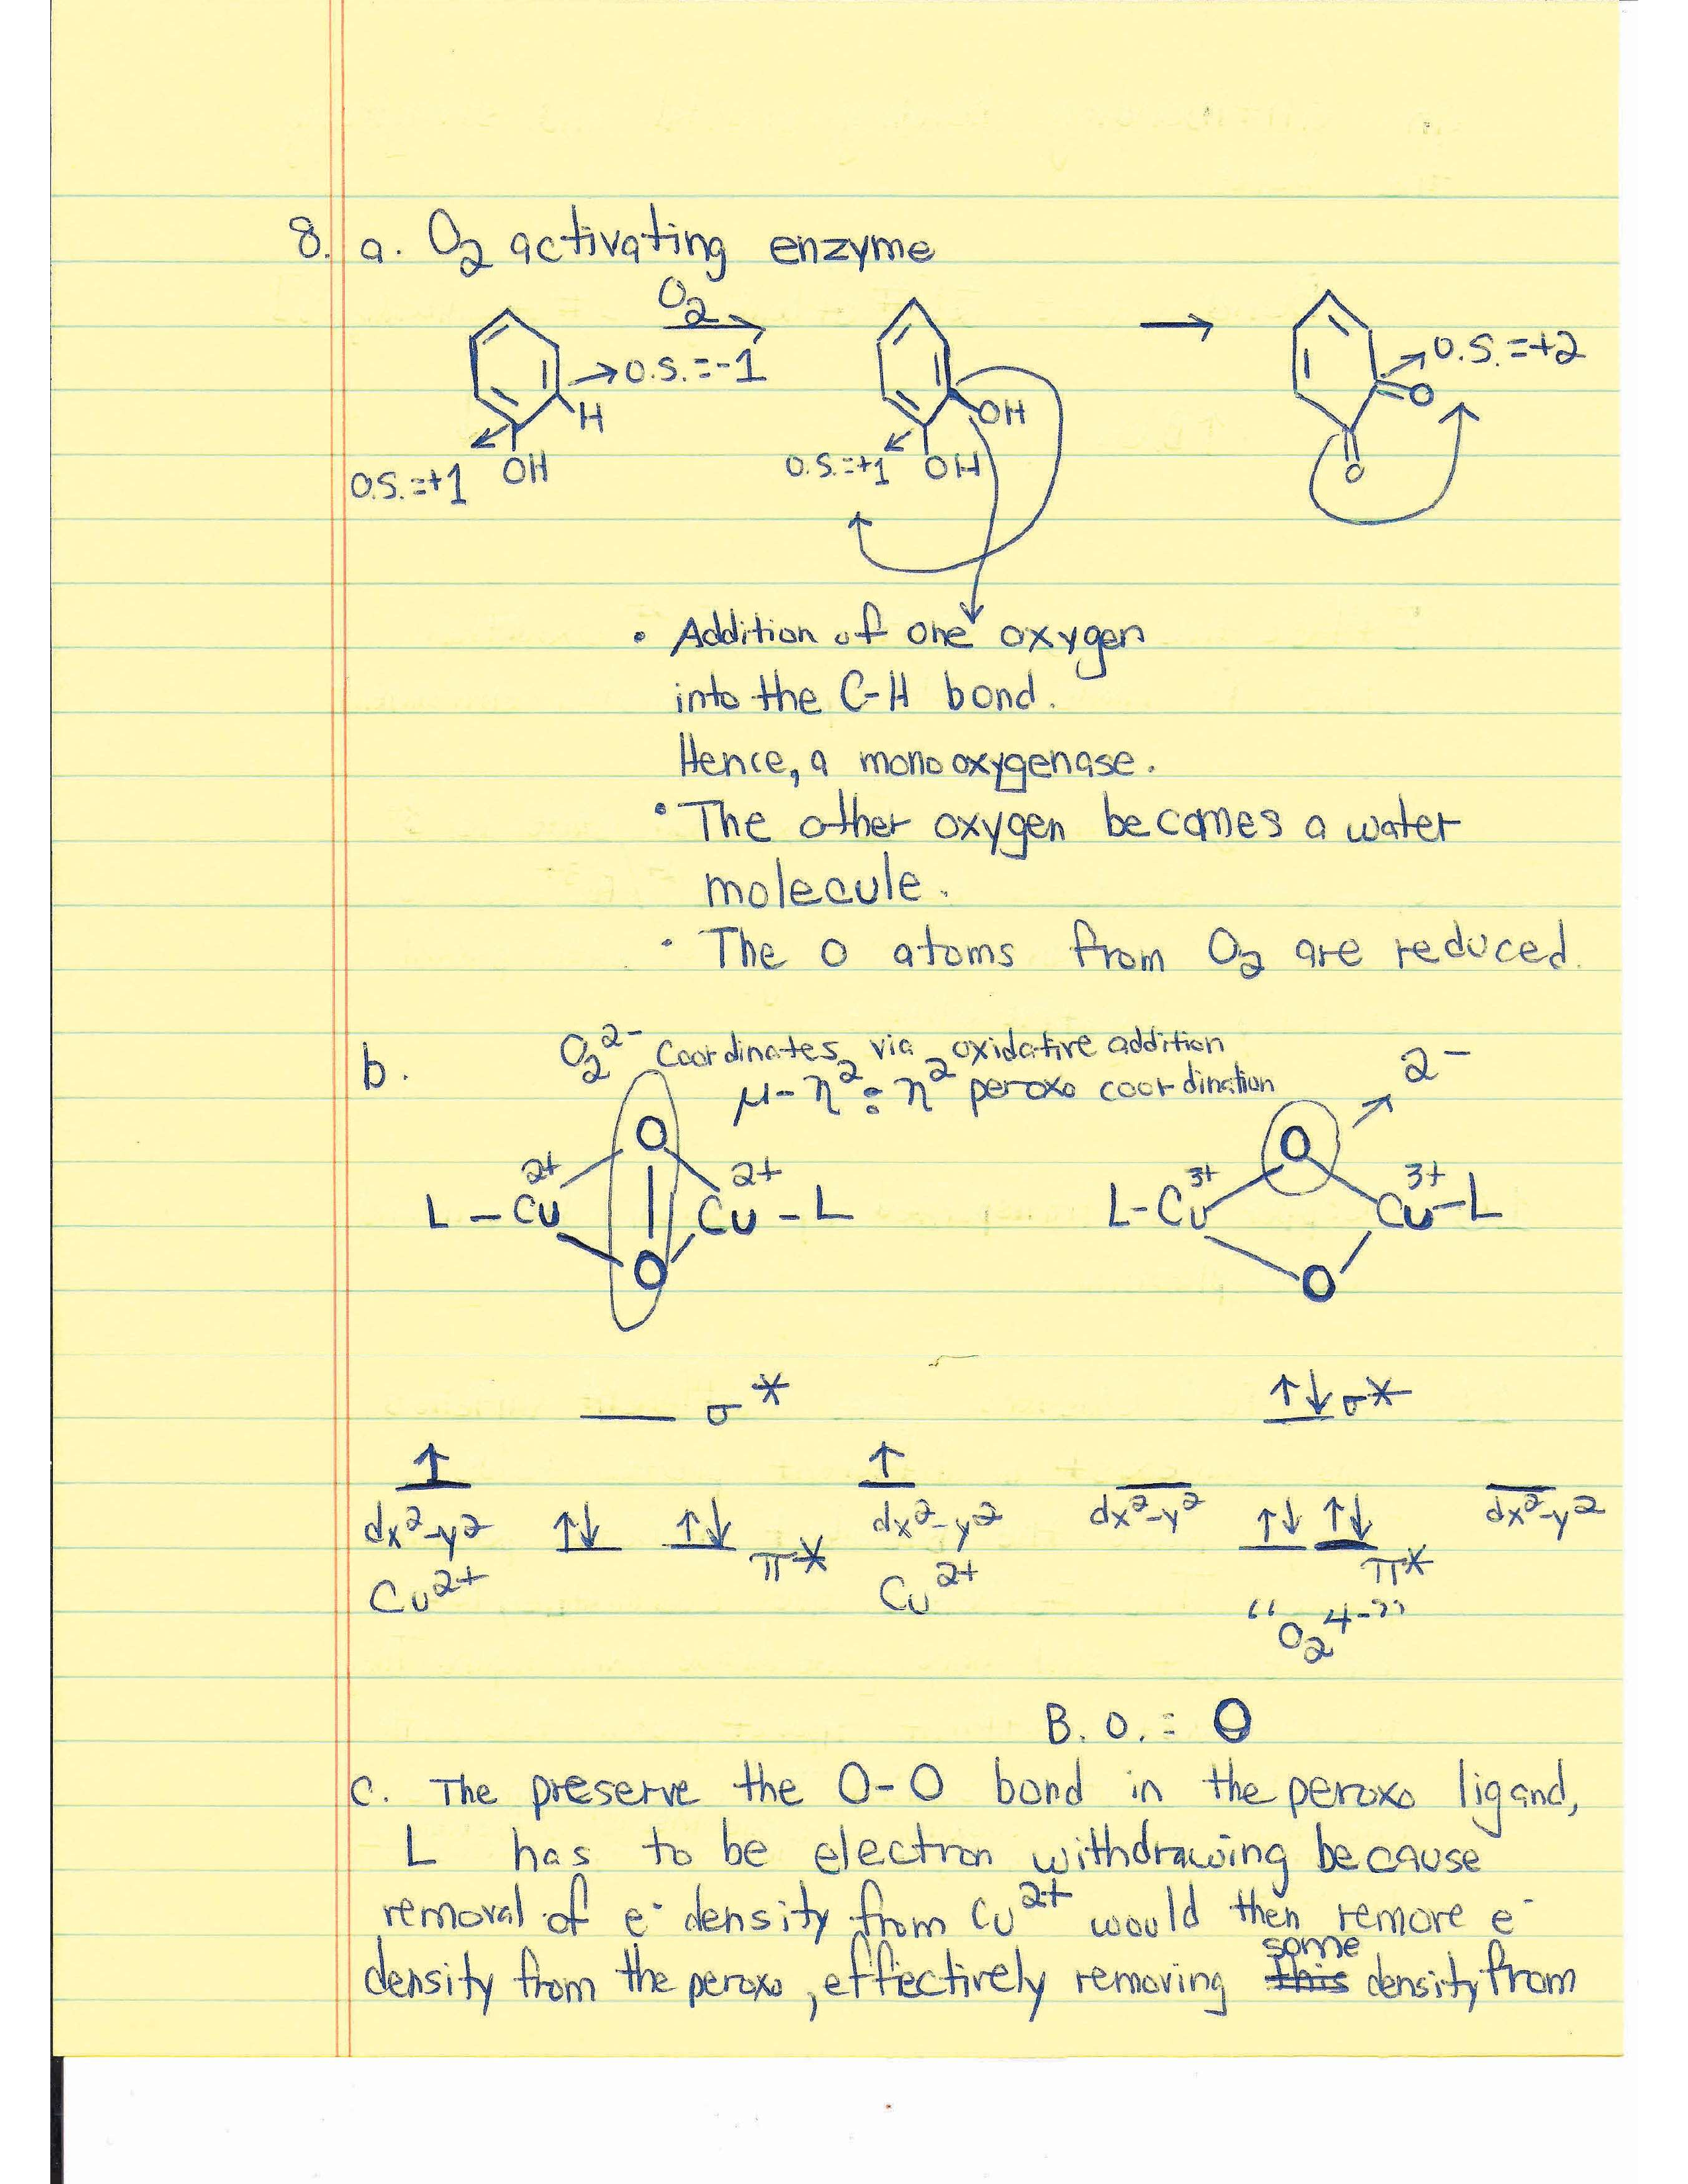 8. a. O₂ activating enzyme
O₂
O.S.=-1
H
OH
O.S.=+1
OH
OH
O.S.=+1
O.S.=+2
O
O
• Addition of one oxygen
into the C-H bond.
Hence, a monooxygenase.
• The other oxygen becomes a water
molecule.
• The O atoms from O₂ are reduced.
b. O₂²⁻ Coordinates via oxidative addition
μ-η²:η² peroxo coordination
2-
O
2+ 2+
L - Cu Cu - L
O
O
3+ 3+
L-Cu Cu-L
O
σ* ↑↓ σ*
↑ ↑
dx²-y² ↑↓ ↑↓ π* dx²-y²
Cu²⁺ Cu²⁺
dx²-y² ↑↓ ↑↓ π* dx²-y²
"O₂⁴⁻"
B.O.: 0
c. The preserve the O-O bond in the peroxo ligand,
L has to be electron withdrawing because
removal of e⁻ density from Cu²⁺ would then remove e⁻
density from the peroxo, effectively removing some density from